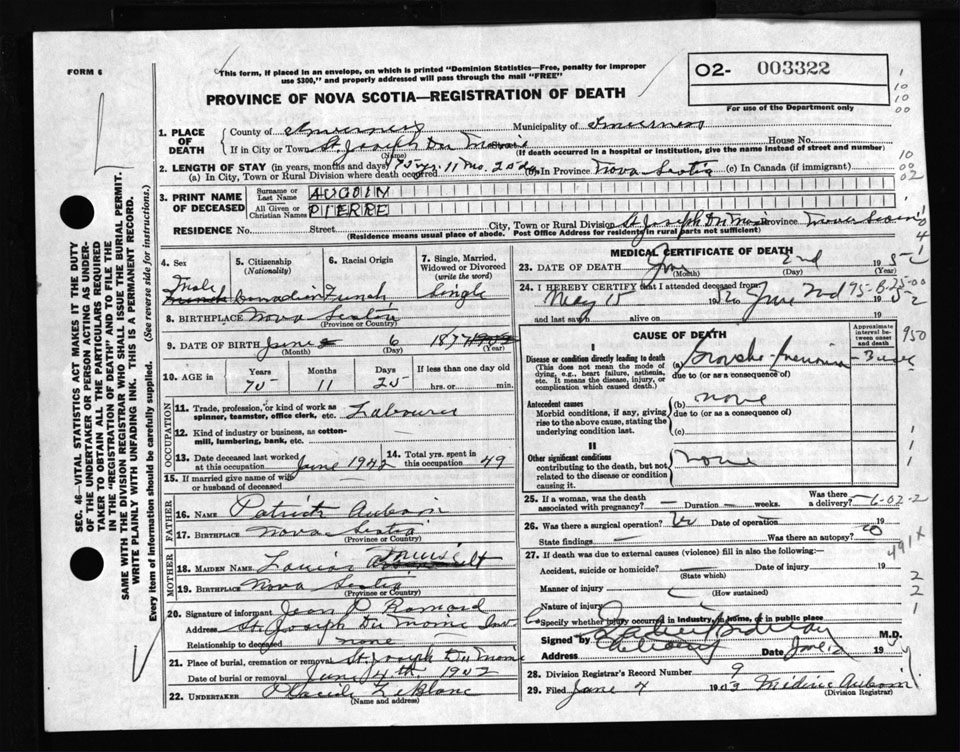 FORM 6
This form, if placed in an envelope, on which is printed "Dominion Statistics—Free, penalty for improper use $300," and properly addressed will pass through the mail "FREE"
02- 003322
For use of the Department only
PROVINCE OF NOVA SCOTIA—REGISTRATION OF DEATH
1. PLACE OF DEATH
County of Inverness Municipality of Inverness
If in City or Town St. Joseph Du Moine House No.
(Name) (If death occurred in a hospital or institution, give the name instead of street and number)
2. LENGTH OF STAY (in years, months and days)
(a) In City, Town or Rural Division where death occurred 75 yrs. 11 mo. 25 d (b) In Province Nova Scotia (c) In Canada (if immigrant)
3. PRINT NAME OF DECEASED
Surname or Last Name AUCOIN
All Given or Christian Names PIERRE
RESIDENCE No. Street City, Town or Rural Division St Joseph Du Moine Province Nova Scotia
(Residence means usual place of abode. Post Office Address for residents in rural parts not sufficient)
4. Sex
Male
5. Citizenship (Nationality)
Canadian
6. Racial Origin
French
7. Single, Married, Widowed or Divorced (write the word)
Single
8. BIRTHPLACE Nova Scotia
(Province or Country)
9. DATE OF BIRTH June 6
(Month) (Day) (Year)
10. AGE in
Years Months Days If less than one day
75 11 25 hrs. or min.
OCCUPATION
11. Trade, profession, or kind of work as spinner, teamster, office clerk, etc. Labourer
12. Kind of industry or business, as cotton-mill, lumbering, bank, etc.
13. Date deceased last worked at this occupation June 1942
14. Total yrs. spent in this occupation 49
15. If married give name of wife or husband of deceased
FATHER
16. Name Patrick Aucoin
17. BIRTHPLACE Nova Scotia
(Province or Country)
MOTHER
18. MAIDEN NAME Louise
19. BIRTHPLACE Nova Scotia
(Province or Country)
20. Signature of informant Jean P
Address St. Joseph Du Moine Inv
Relationship to deceased none
21. Place of burial, cremation or removal St. Joseph Du Moine
Date of burial or removal June 4th
22. UNDERTAKER Placide LeBlanc
(Name and address)
MEDICAL CERTIFICATE OF DEATH
23. DATE OF DEATH June 2nd 195
(Month) (Day) (Year)
24. I HEREBY CERTIFY that I attended deceased from
May 15 to June 2nd
and last saw alive on 19
CAUSE OF DEATH
Approximate interval between onset and death
I
Disease or condition directly leading to death
(This does not mean the mode of dying, e.g., heart failure, asthenia, etc. It means the disease, injury, or complication which caused death.)
(a) Broncho-Pneumonia
due to (or as a consequence of)
Antecedent causes
Morbid conditions, if any, giving rise to the above cause, stating the underlying condition last.
(b) none
due to (or as a consequence of)
(c)
II
Other significant conditions
contributing to the death, but not related to the disease or condition causing it.
none
25. If a woman, was the death associated with pregnancy? — Duration — weeks. Was there a delivery?
26. Was there surgical operation? Date of operation 19
State findings — Was there an autopsy? no
27. If death was due to external causes (violence) fill in also the following:—
Accident, suicide or homicide? Date of injury 19
(State which)
Manner of injury
(How sustained)
Nature of injury
Specify whether injury occurred in industry, in home, or in public place
Signed by M.D.
Address Date June 2 19
28. Division Registrar's Record Number 9
29. Filed June 4 19 Aucoin
(Division Registrar)
SEC. 46—VITAL STATISTICS ACT MAKES IT THE DUTY OF THE UNDERTAKER OR PERSON ACTING AS UNDERTAKER TO OBTAIN ALL THE PARTICULARS REQUIRED IN THE "REGISTRATION OF DEATH" AND TO FILE THE SAME WITH THE DIVISION REGISTRAR WHO SHALL ISSUE THE BURIAL PERMIT.
WRITE PLAINLY WITH UNFADING INK. THIS IS A PERMANENT RECORD.
Every item of information should be carefully supplied. (See reverse side for instructions.)